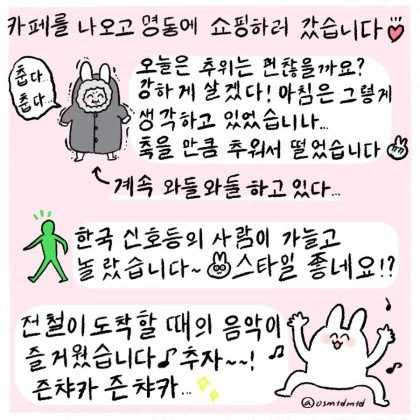 카페를 나오고 명동에 쇼핑하러 갔습니다
춥다..
춥다..
오늘은 추위는 괜찮을까요?
강하게 살겠다! 아침은 그렇게
생각하고 있었습니다...
죽을 만큼 추워서 떨었습니다
계속 와들와들 하고 있다...
한국 신호등의 사람이 가늘고
놀랐습니다~ 스타일 좋네요!?
전철이 도착할 때의 음악이
즐거웠습니다♪ 추자~~!
즌챠카 즌챠카...
@osmtdmtd